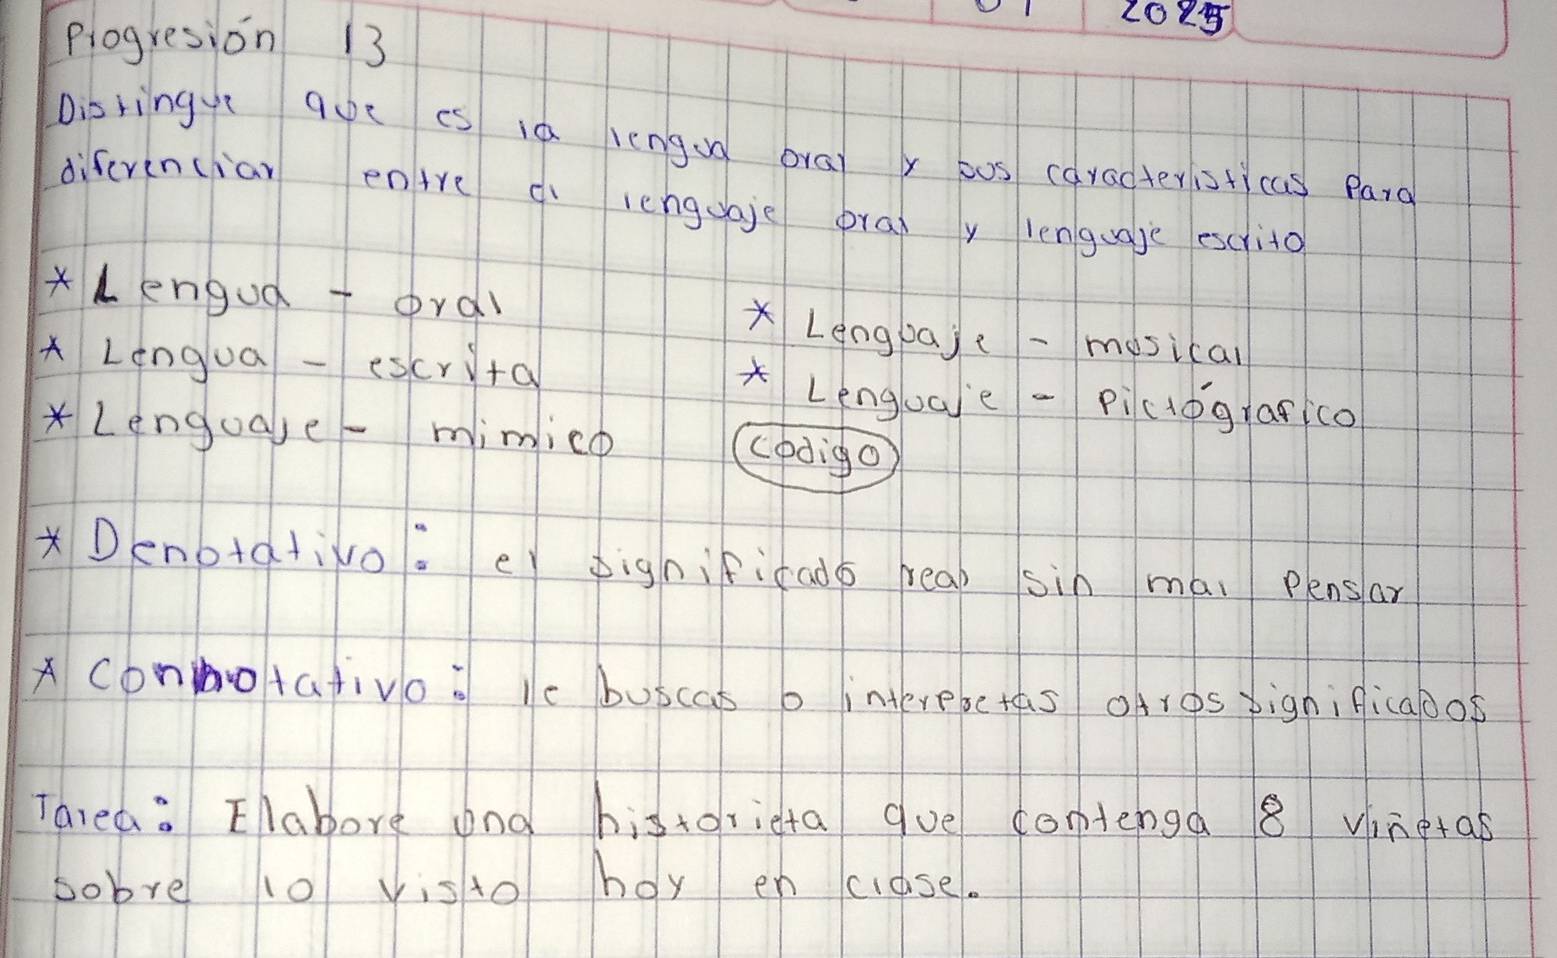 01 2025
Progresión 13
Distingue que es la lengua oral y sus caracteristicas Para
diferenciar entre el lenguaje oral y lenguaje escrito
* Lengua - oral
* Lengua - escrita
* Lenguaje - mimico
* Lenguaje - musical
* Lenguaje - Pictógrafico
Codigo
* Denotativo: el significado real sin mal Pensar
* Connotativo: le buscas o interpretas otros significados
Tarea: Elabore una historieta que contenga 8 viñetas
sobre lo visto hoy en clase.